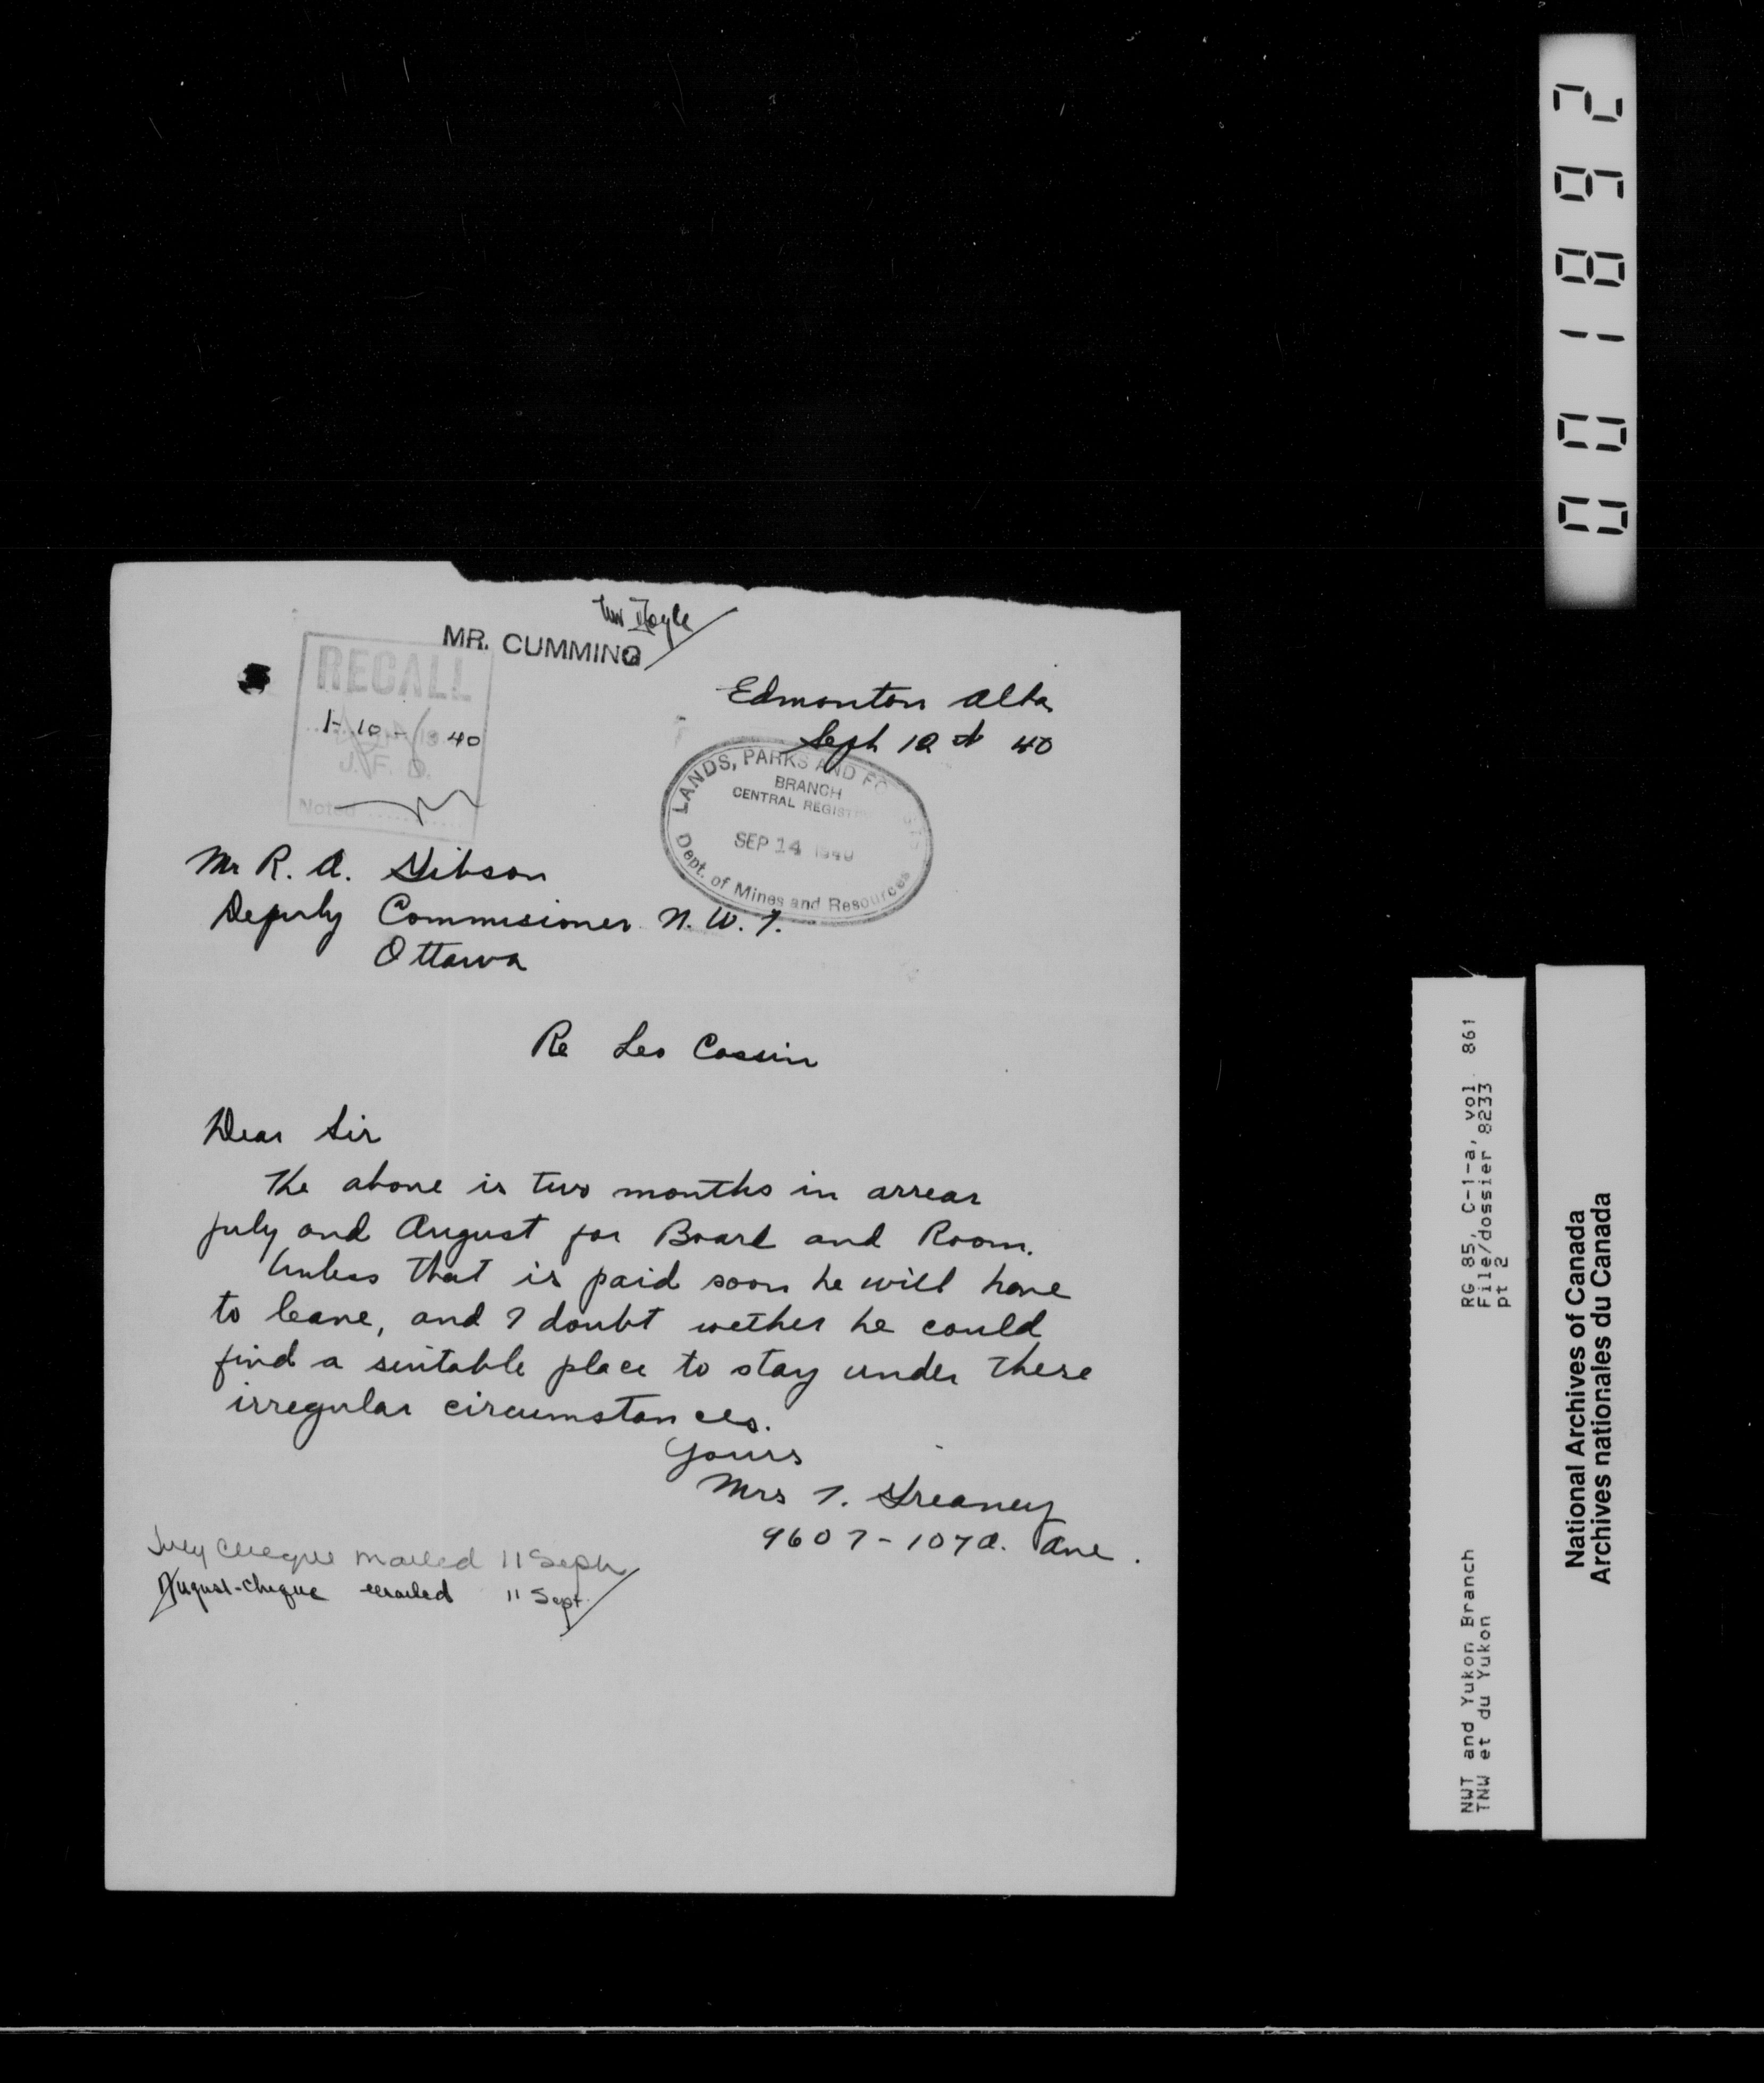 Mr Doyle
MR. CUMMING
RECALL
1-10-40
J. F. D.
Noted
Edmonton Alta
Sept 12th 40
LANDS, PARKS AND FO
BRANCH
CENTRAL REGIST
SEP 14 1940
Dept. of Mines and Resources
Mr R. A. Gibson
Deputy Commisioner N. W. T.
Ottawa
Re Leo Cassin
Dear Sir
The above is two months in arrear
July and August for Board and Room.
Unless that is paid soon he will have
to leave, and I doubt wether he could
find a suitable place to stay under these
irregular circumstances.
Yours
Mrs T. Greaney
9607-107A. Ave.
July Cheque mailed 11 Sept
August-cheque mailed 11 Sept.
001892
RG 85, C-1-a, vol. 861
File/dossier 8233
pt 2
NWT and Yukon Branch
TNW et du Yukon
National Archives of Canada
Archives nationales du Canada